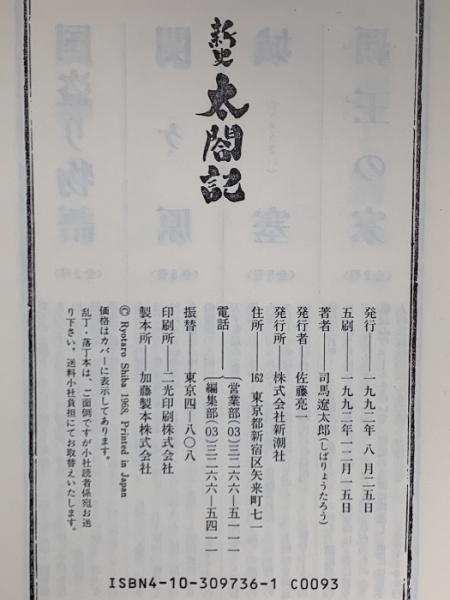 新史
太閤記
発行―――一九九二年 八月二五日
五刷―――一九九二年一二月一五日
著者―――司馬遼太郎(しばりょうたろう)
発行者――佐藤亮一
発行所――株式会社新潮社
住所―――162 東京都新宿区矢来町七一
電話―――(営業部(03)三二六六―五一一一
(編集部(03)三二六六―五四一一
振替―――東京四―八〇八
印刷所――二光印刷株式会社
製本所――加藤製本株式会社
© Ryotaro Shiba 1968, Printed in Japan
価格はカバーに表示してあります。
乱丁・落丁本は、ご面倒ですが小社読者係宛お送
り下さい。送料小社負担にてお取替えいたします。
ISBN4-10-309736-1 C0093
覇王の家
城塞
関ヶ原
国盗り物語